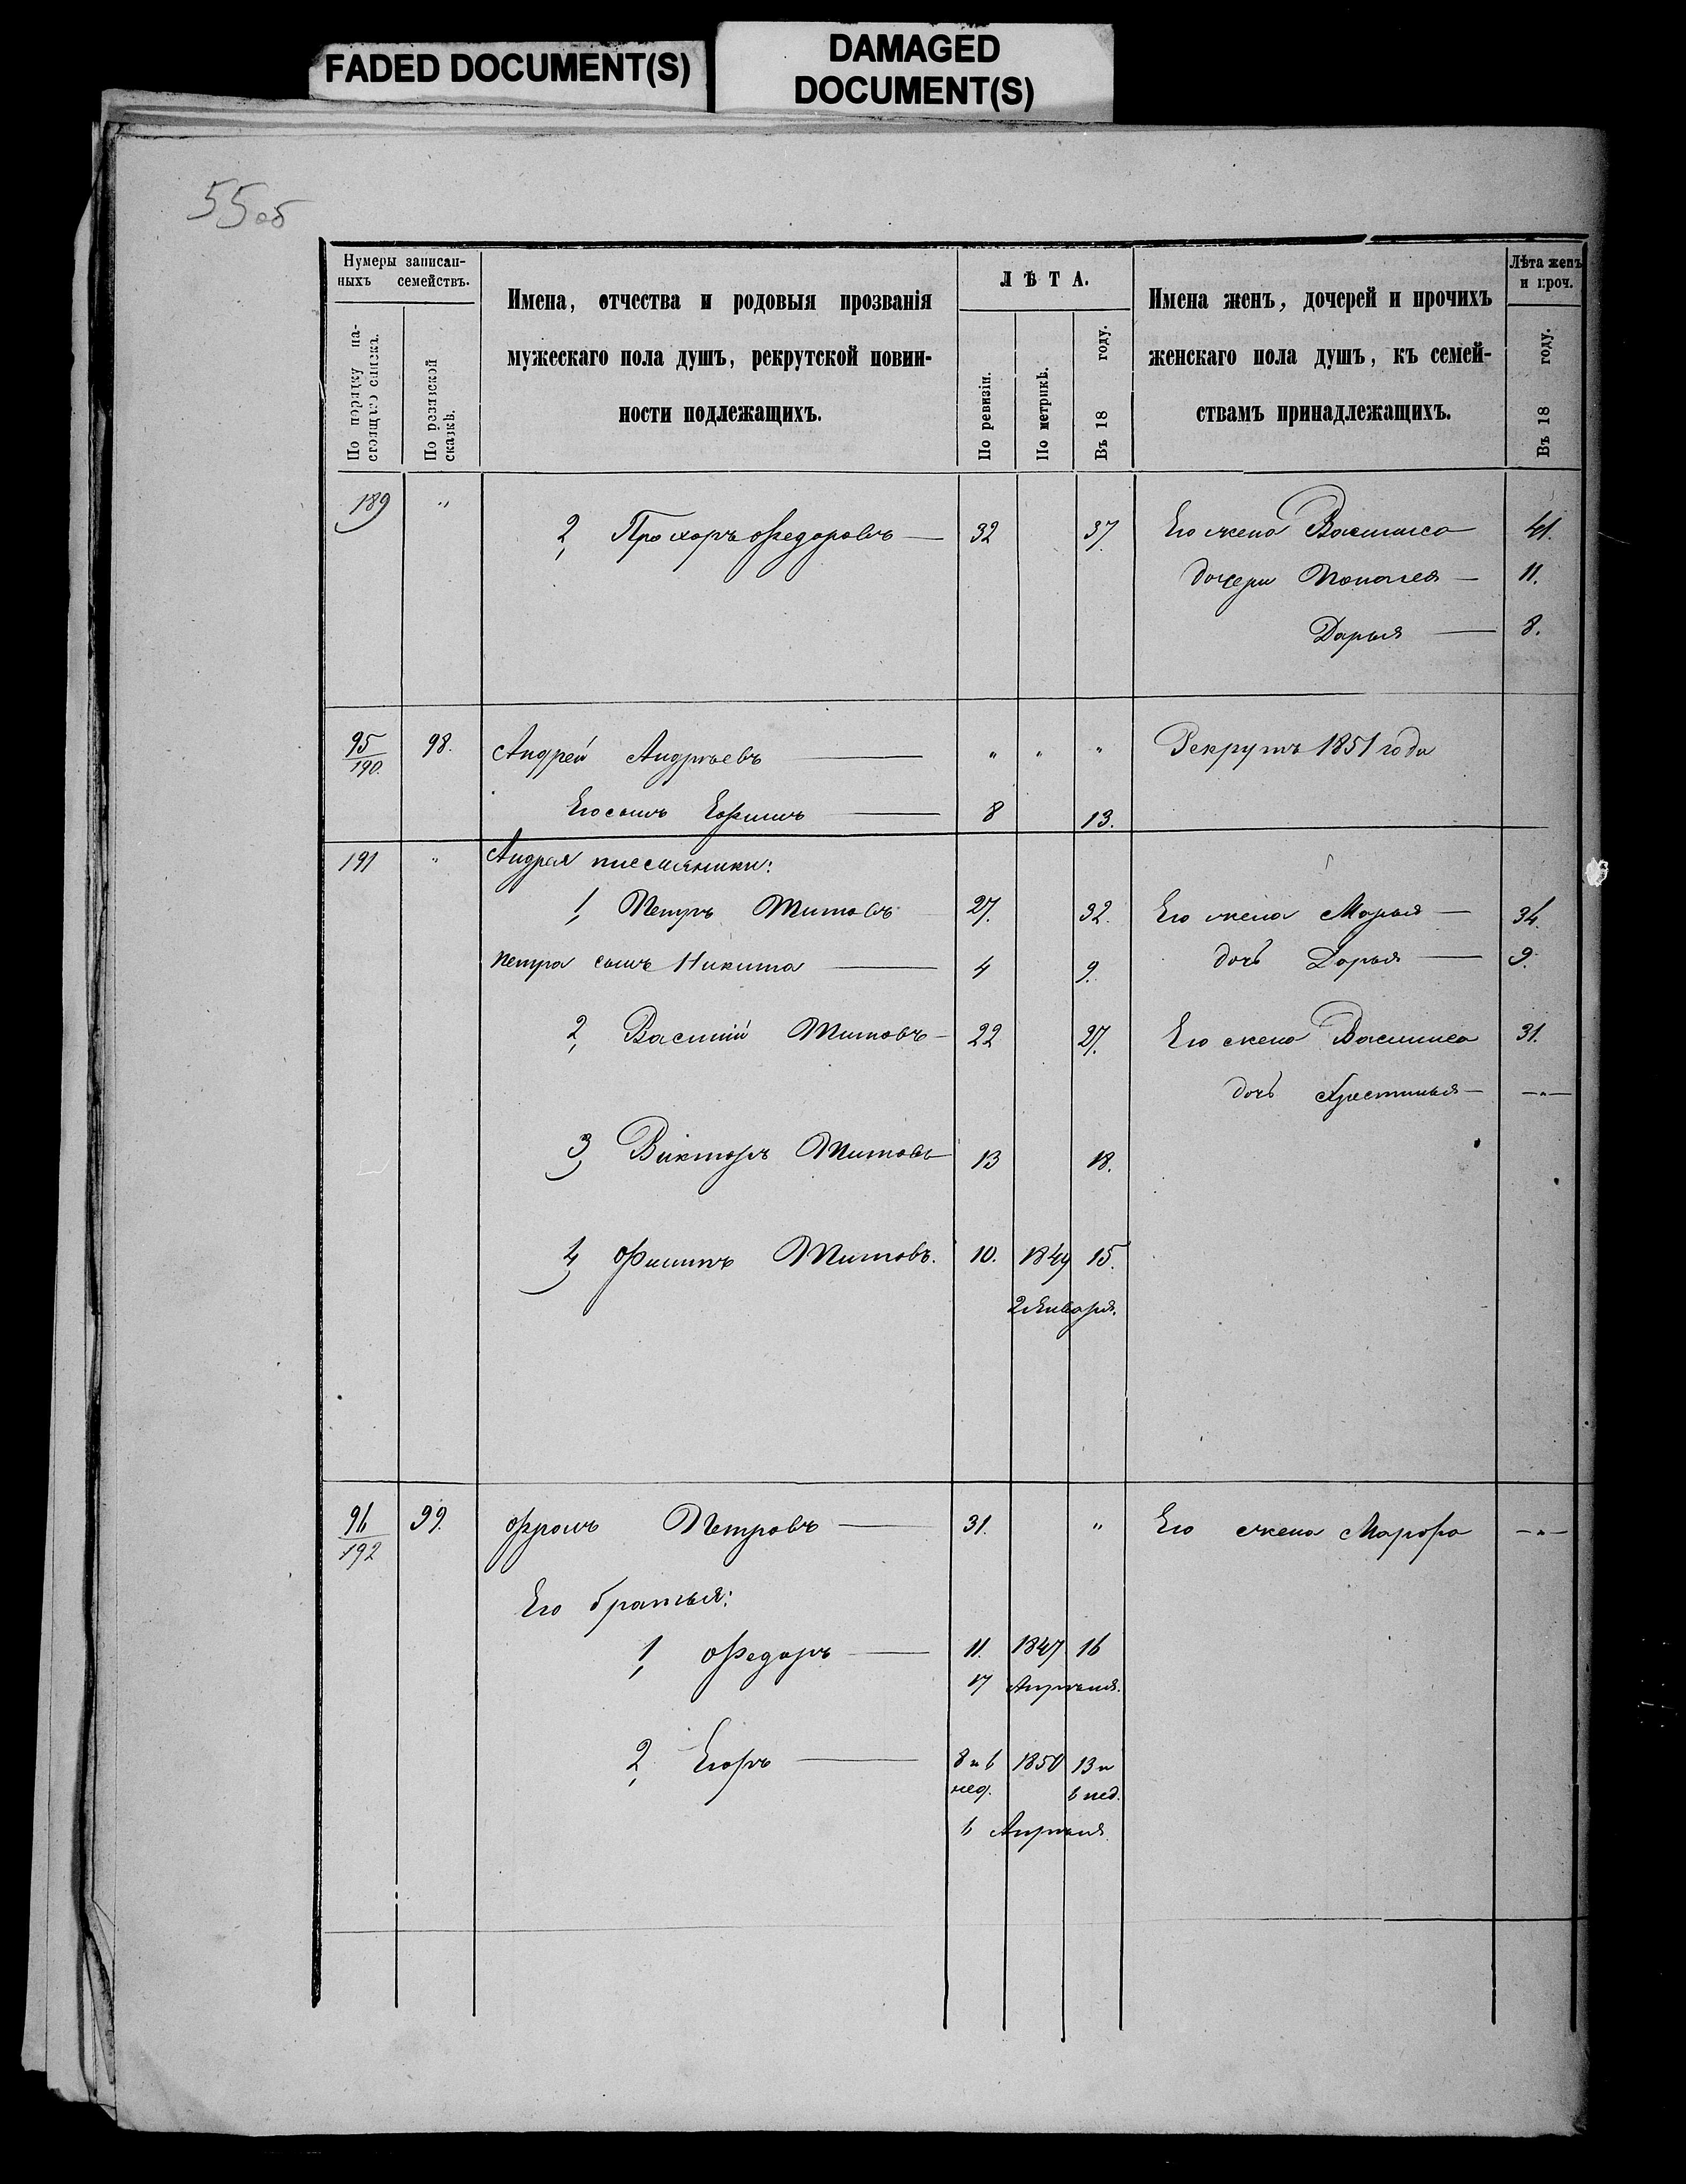 FADED DOCUMENT(S)
DAMAGED
DOCUMENT(S)
55об
Нумеры записан-
ныхъ семействъ.
По порядку на-
стоящаго списка.
По ревизской
сказкѣ.
Имена, отчества и родовыя прозванія
мужескаго пола душъ, рекрутской повин-
ности подлежащихъ.
ЛѢТА.
По ревизіи.
По метрикѣ.
Въ 18 году.
Имена женъ, дочерей и прочихъ
женскаго пола душъ, къ семей-
ствамъ принадлежащихъ.
Лѣта женъ
и проч.
Въ 18 году.
189 " 2, Прохоръ Федоровъ — 32 37. Его жена Василиса 41.
дочери Пелагея — 11.
Дарья — 8.
95/190. 98. Андрей Андреевъ — " " " Рекрутъ 1851 года
Его сынъ Ефимъ — 8 13.
191 " Андрея племянники:
1, Петръ Титовъ 27. 32. Его жена Марья — 34.
Петра сынъ Никита — 4 9. дочь Дарья — 9.
2, Василій Титовъ — 22 27. Его жена Василиса 31.
дочь Христинья — —"—
3, Викторъ Титовъ 13 18.
4, Филипъ Титовъ. 10. 1849 15.
2 Января.
96/192 99. Фролъ Петровъ — 31. " Его жена Марфа —"—
Его братья:
1, Федоръ — 11. 1847 16
17 Апрѣля.
2, Егоръ — 8 и 6 1850 13 и
нед. 6 нед.
6 Апрѣля.